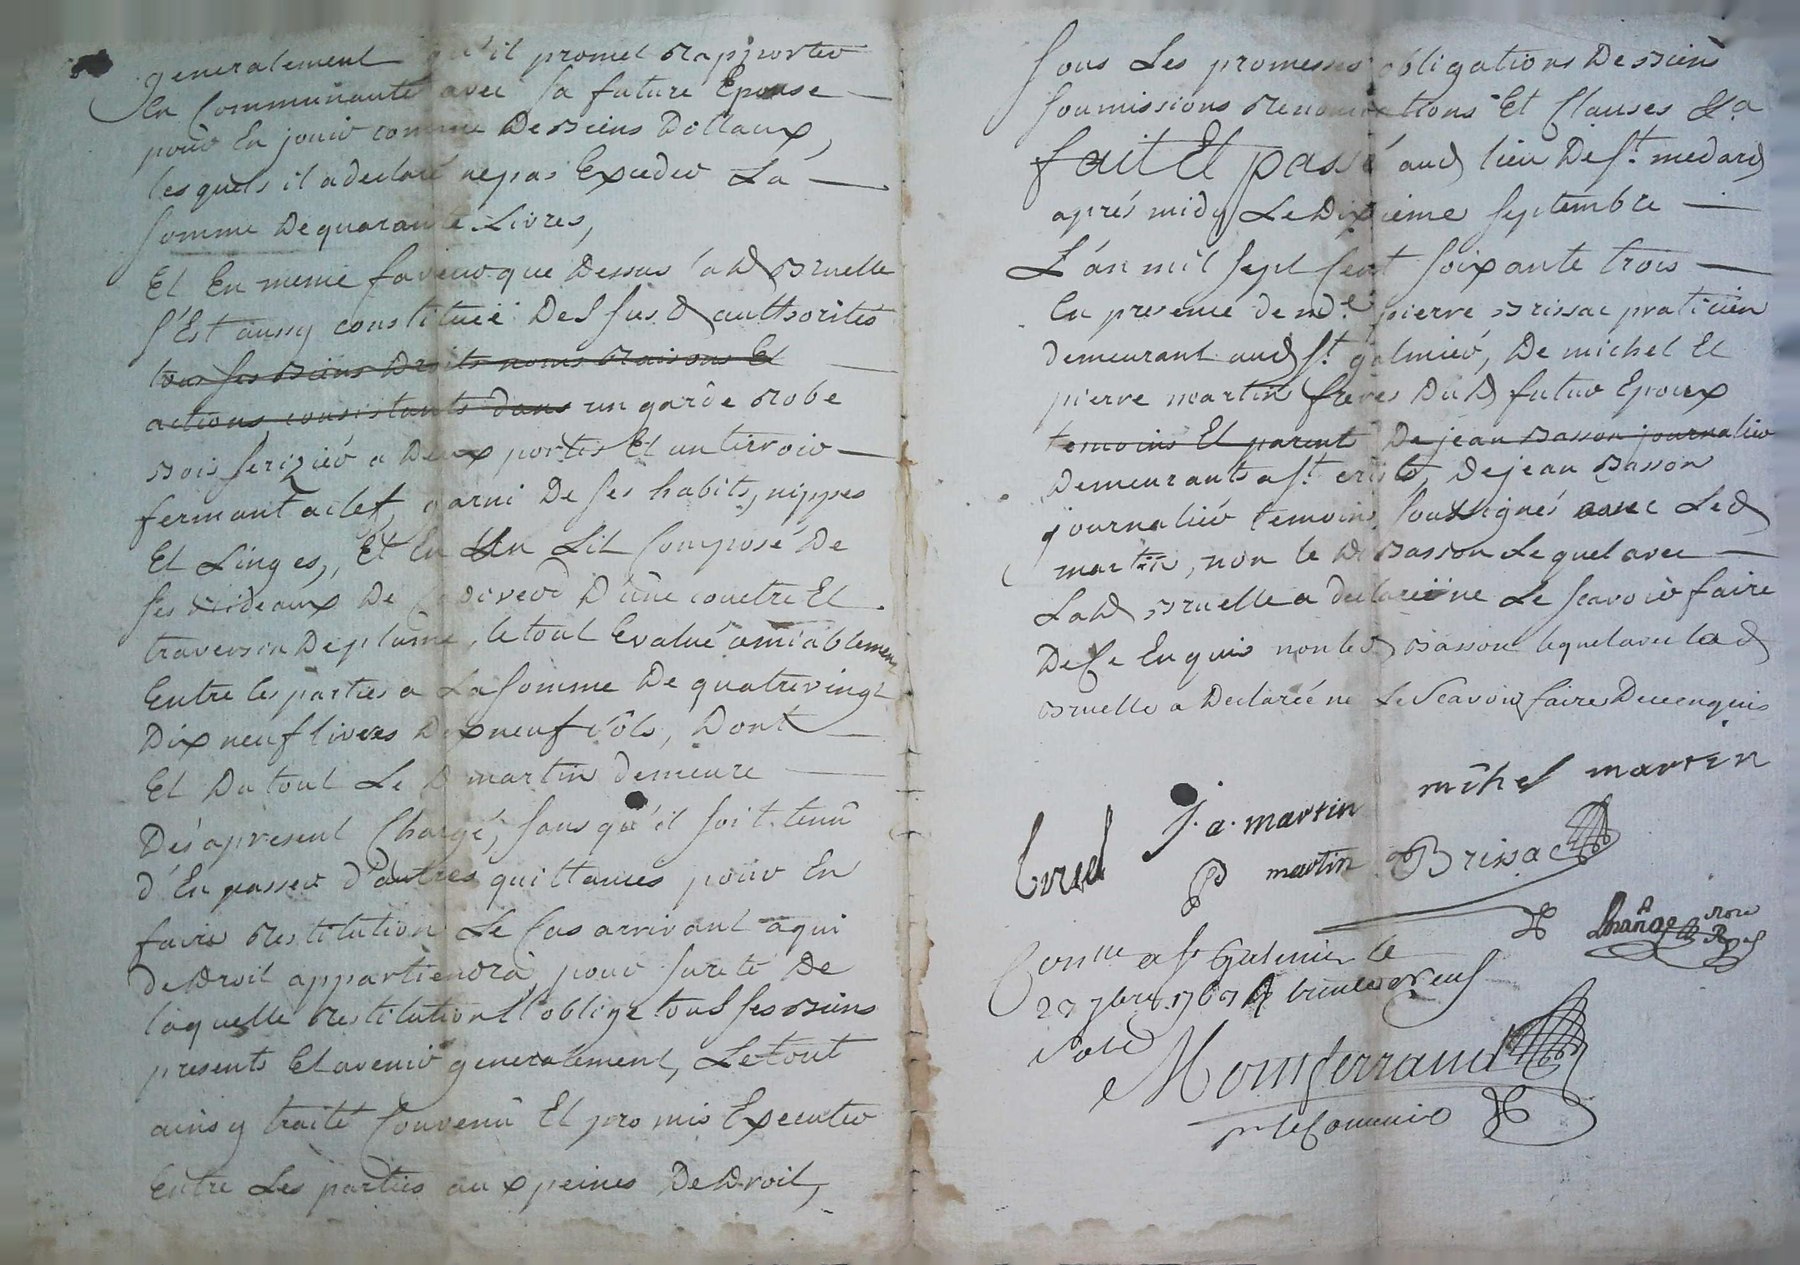 generalement qu'il promet Rapporter
En Communauté avec sa future Epouse
pour En jouir comme De Biens Dottaux,
lesquels il a declaré ne pas Exceder La
somme De quarante Livres,
Et En meme faveur que Dessus lad Bruelle
s'Est aussy constituée De Ses fus d authorités
tous ses Biens Droits noms Raisons Et
actions consistants dans un garde Robe
Bois serizier a Deux portes Et un tirroir
fermant a clef garni De ses habits, nippes
Et Linges, Et En Un Lit Composé De
ses Rideaux De D'une couetre Et
traversin De plume, le tout Evalué amiablement
Entre les parties a La somme De quatrevingt
Dix neuf livres Dix neuf sols, Dont
Et Du tout Le D martin demeure
Dés apresent Chargé, sans qu'il soit tenû
d'En passer d'autres quittances pour En
faire Restitution Le Cas arrivant a qui
de Droit appartiendra, pour sureté De
laquelle Restitution Il oblige tous ses Biens
presents Et avenir generalement, Le tout
ainsy traité Convenû Et promis Executer
Entre Les parties aux peines De Droit,
sous Les promesses obligations De Biens
soumissions Renonciations Et Clauses &a
fait Et passé aud lieu De St medard
aprés midy Le Dixieme septembre
L'an mil sept Cent soixante trois
En presence de pierre Brissac praticien
demeurant aud St galmier, De michel Et
pierre martin freres Dud futur Epoux
temoins Et parent De jean Basson journalier
Demeurants a St De jean Basson
journalier temoins soussignés avec Led
martin, non le D Basson Lequel avec
Lad Bruelle a declareé ne Le scavoir faire
De Ce Enquis non led Basson lequel avec lad
Bruelle a Declareé ne Le Scavoir faire De ce enquis
michel martin
J. a. martin
P martin Brissac
Conlle a St Galmier le
23 7bre 1763 R trente neuf
sols
Montferrand
pr le Commis